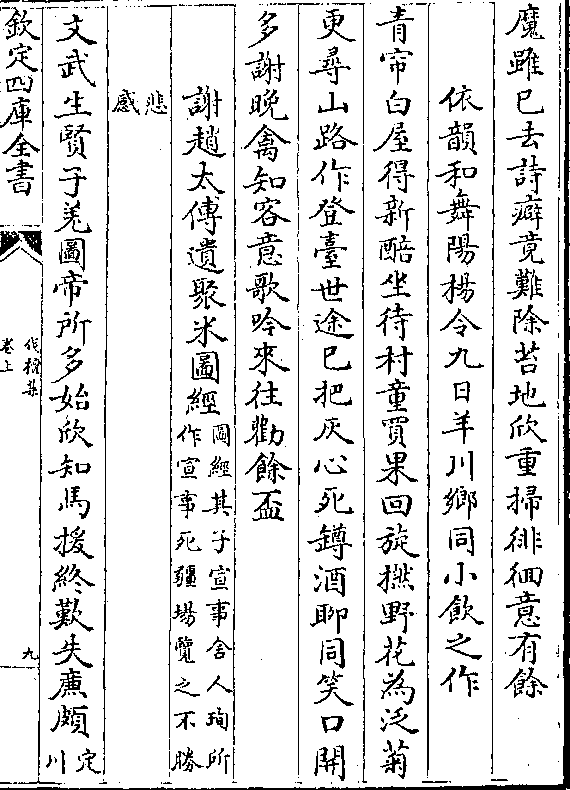 魔雖已去詩癖竟難除苔地欣重掃徘徊意有餘
依韻和舞陽楊令九日羊川鄉同小飲之作
青帘白屋得新醅坐待村童買果回旋撚野花為泛菊
更尋山路作登臺世途已把灰心死罇酒聊同笑口開
多謝晚禽知客意歌吟來往勸餘盃
謝趙太傅遺聚米圖經
圖經其子宣事舍人珣所
作宣事死疆場覽之不勝
悲
感
文武生賢子羌圖帝所多始欣知馬援終歎失廉頗
定
川
欽定四庫全書
伐檀集
卷上
九